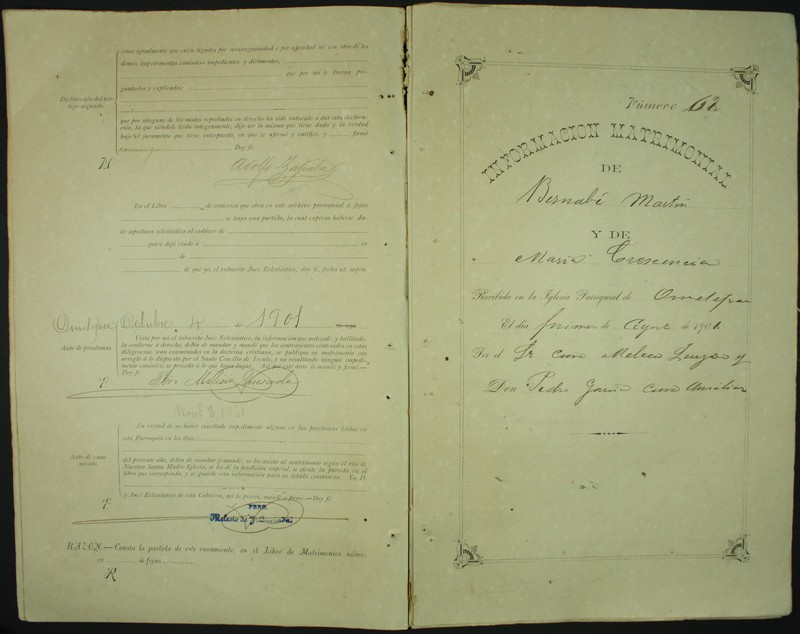 como igualmente que estén ligados por consanguinidad ó por afinidad ni con otro de los
demás impedimentos canónicos impedientes y dirimentes,
que por mí le fueron pre-
guntados y explicados
Declaración del tes-
tigo segundo.
que por ninguno de los modos reprobados en derecho ha sido inducido á dar esta declara-
ción, la que siéndole leída íntegramente, dijo ser la misma que tiene dada y la verdad
bajo el juramento que tiene interpuesto, en que se afirmó y ratificó, y firmó
Doy fe.
Adolfo Zapata
En el Libro de entierros que obra en este archivo parroquial á fojas
se haya una partida, la cual expresa haberse da-
do sepultura eclesiástica al cadáver de
quien dejó viudo á en
de
de que yo, el subscrito Juez Eclesiástico, doy fe, fecha ut supra.
Ometepec Octubre 4 de 1901
Auto de proclamas.
Vista por mí el subscrito Juez Eclesiástico, la información que antecede, y hallándo-
la conforme á derecho, debía de mandar y mandé que los contrayentes contenidos en estas
diligencias, sean examinados en la doctrina cristiana, se publique su matrimonio con
arreglo á lo dispuesto por el Santo Concilio de Trento, y no resultando ningún impedi-
mento canónico, se proceda á lo que haya lugar. Así por este auto lo mandé y firmé.—
Doy fe.
Pbro. Melesio Quesada
1901
En virtud de no haber resultado impedimento alguno en las proclamas leidas en
esta Parroquia en los días
Auto de casa-
miento.
del presente año, debía de mandar y mandé: se les asista al matrimonio según el rito de
Nuestra Santa Madre Iglesia, se les dé la bendición nupcial, se siente la partida en el
libro que corresponda, y se guarde esta información para su debida constancia. Yo, D.
y Juez Eclesiástico de esta Cabecera, así lo proveí, mandé y firmé.—Doy fe.
PBRO.
Melesio de J. Quesada
RAZON.—Consta la partida de este casamiento, en el Libro de Matrimonios núme-
ro de fojas
Número 62
INFORMACION MATRIMONIAL
DE
Bernabé Martin
Y DE
Maria Crescencia
Recibida en la Iglesia Parroquial de Ometepec
El día primero de Agto de 1901.
Por el Sr Cura Melesio Quesada y
Don Pedro Garcia Cura Auxiliar